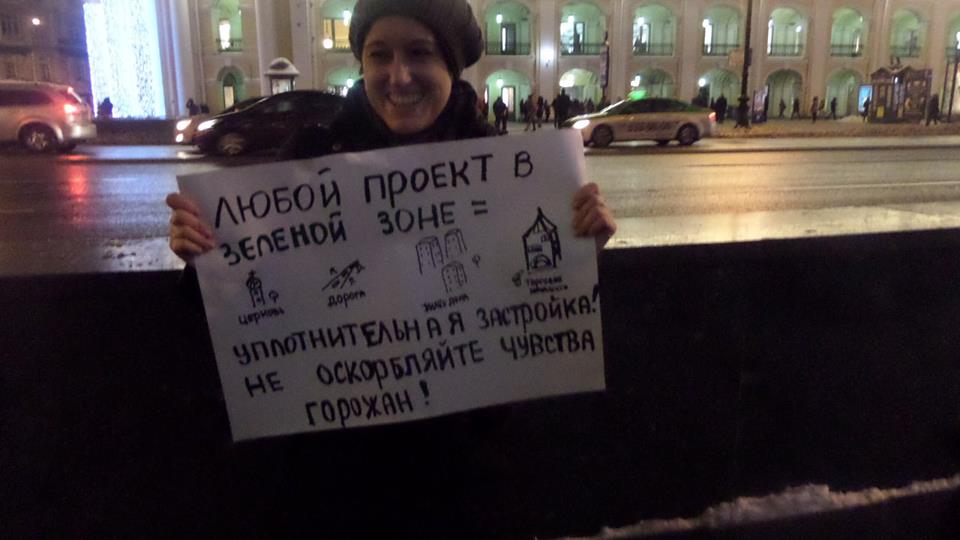 ЛЮБОЙ ПРОЕКТ В
ЗЕЛЕНОЙ ЗОНЕ =
церковь дорога жилые дома торговая
УПЛОТНИТЕЛЬНАЯ ЗАСТРОЙКА!
НЕ ОСКОРБЛЯЙТЕ ЧУВСТВА
ГОРОЖАН!